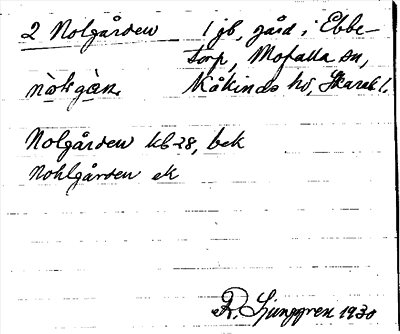 2 Nolgården 1 jb, gård i Ebbe-
torp, Mofalla sn,
nòlgàn. Kåkinds hd, Skarab l.
Nolgården kb 28, bek
Nohlgården ek
R. Ljunggren 1930